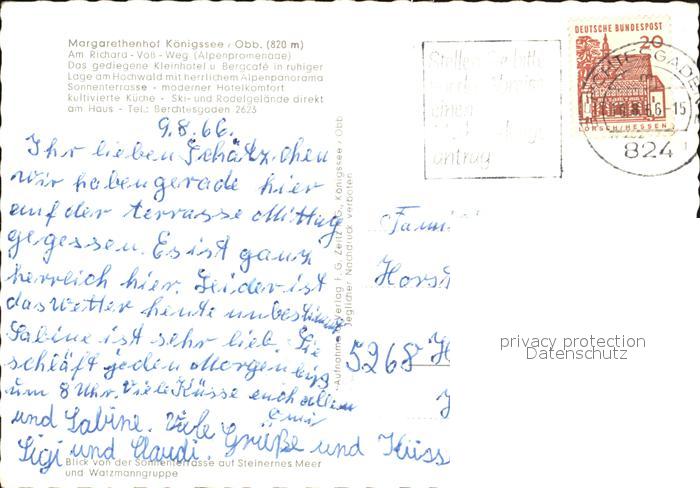 Margarethenhof Königssee / Obb. (820 m)
Am Richard - Voß - Weg (Alpenpromenade)
Das gediegene Kleinhotel u. Bergcafé in ruhiger
Lage am Hochwald mit herrlichem Alpenpanorama
Sonnenterrasse - moderner Hotelkomfort
kultivierte Küche - Ski- und Rodelgelände direkt
am Haus - Tel.: Berchtesgaden 2623
9.8.66.
Ihr lieben Schätzchen
wir haben gerade hier
auf der terrasse Mittag
gegessen. Es ist ganz
herrlich hier. Leider ist
das Wetter heute unbestimmt
Sabine ist sehr lieb. Sie
schläft jeden Morgen bis
um 8 Uhr. Viele Küsse euch allen
Omi
und Sabine. Viele Grüße und Küss
Sigi und Claudi.
Blick von der Sonnenterrasse auf Steinernes Meer
und Watzmanngruppe
Jeglicher Nachdruck verboten
Stellen Sie bitte
einen
antrag
DEUTSCHE BUNDESPOST
20
LORSCH/HESSEN
-15
824
Fami
Hors
5268 H
privacy protection
Datenschutz